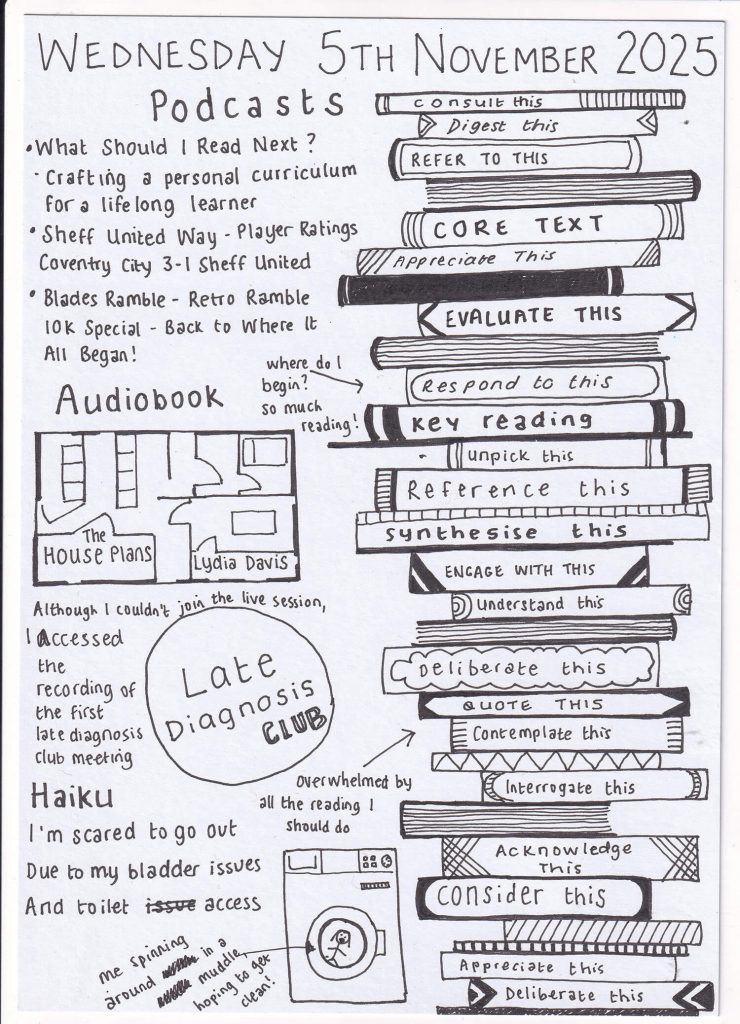 WEDNESDAY 5TH NOVEMBER 2025
Podcasts
• What Should I Read Next?
- Crafting a personal curriculum
for a lifelong learner
• Sheff United Way - Player Ratings
Coventry City 3-1 Sheff United
• Blades Ramble - Retro Ramble
10K Special - Back to Where It
All Began!
Audiobook
The
House Plans
Lydia Davis
Although I couldn't join the live session,
I accessed
the
recording of
the first
late diagnosis
club meeting
Late
Diagnosis
CLUB
Haiku
I'm scared to go out
Due to my bladder issues
And toilet issue access
me spinning
around in a
muddle,
hoping to get
clean!
where do I
begin?
so much
reading!
overwhelmed by
all the reading I
should do
Consult this
Digest this
REFER TO THIS
CORE TEXT
Appreciate This
EVALUATE THIS
Respond to this
Key reading
Unpick this
Reference this
synthesise this
ENGAGE WITH THIS
Understand this
Deliberate this
QUOTE THIS
Contemplate this
Interrogate this
Acknowledge
This
Consider this
Appreciate this
Deliberate this